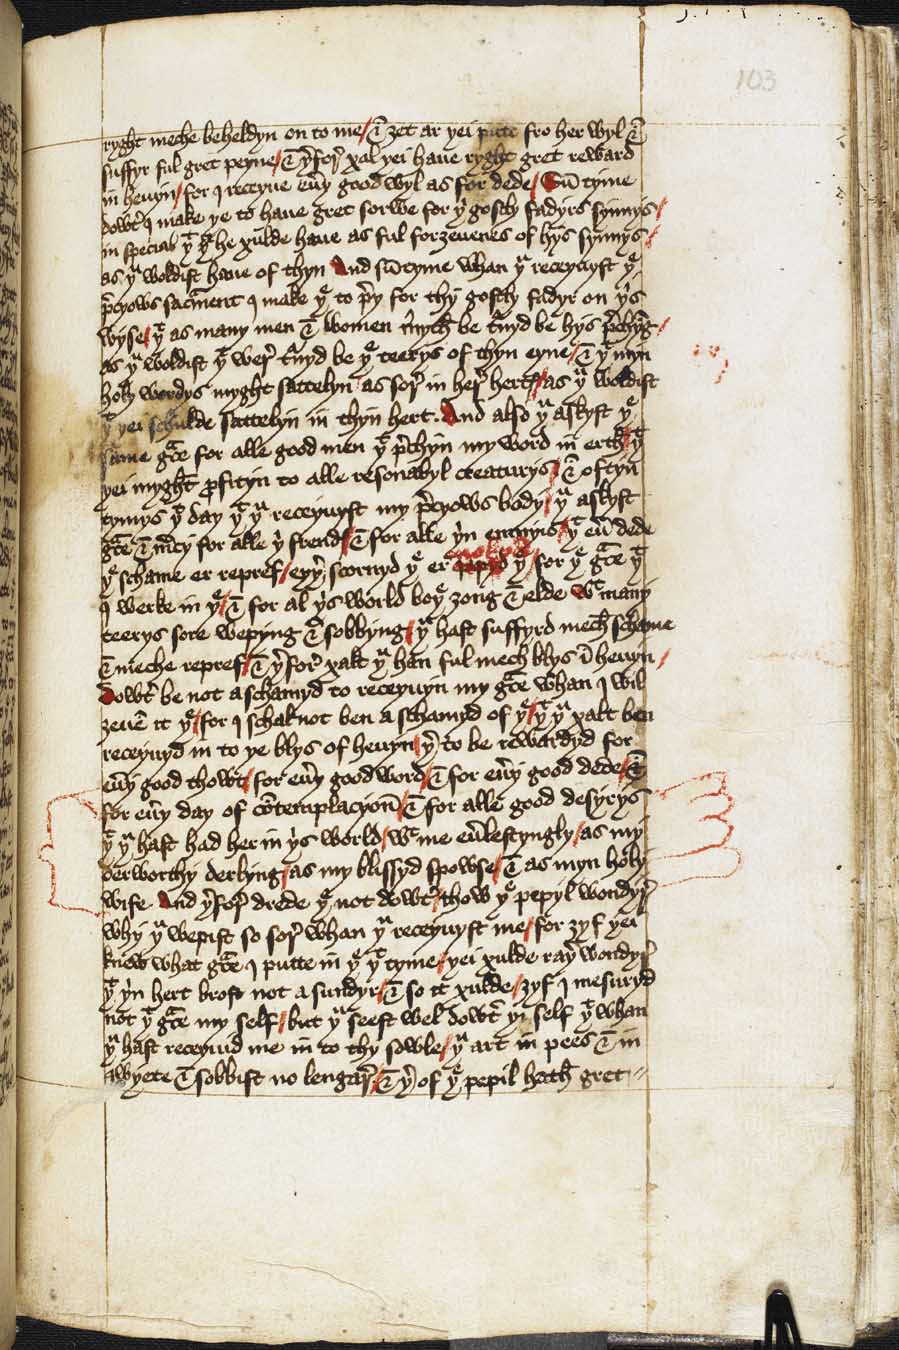 103
ryght meche beheldyn on to me / & ȝet ar yei putte fro her wyl &
suffyr ful gret peyne / & yʳfor xal yei haue ryght gret reward
in heuyn / for I receyue eu̅y good wyl as for dede / Su̅ tyme
dowtʳ I make ye to haue gret sorwe for yⁱ gostly fadyrs synnys /
in special yᵗ he xulde haue as ful forȝeuenes of hys synnys /
as yᵘ woldist haue of thyn And su̅tyme whan yᵘ receyuyst yᵉ
p̅cyows sacʳment I make yᵉ to p̅y for thy gostly fadyr on yⁱs
wyse / yᵗ as many men & women myth be tʳnyd be hys p̅chyng /
as yᵘ woldist yᵗ werʳ tʳnyd be yᵉ teerys of thyn eyne / & yᵗ myn
holy wordys myght sattelyn as sorʳ in herʳ hert / as yᵘ woldist
yᵗ yei schulde sattelyn in thyn hert. And also yᵘ askyst yᵉ
same gᵃce for alle good men yᵗ p̅chyn my word in erth / yᵗ
yei myght profityn to alle resonabyl creaturys / & oftyn
tymys yᵗ day yᵗ yᵘ receyuyst my p̅cyows body / yᵘ askyst
gᵃce & m̅cy for alle yⁱ frend / & for alle yⁱn enmyis / yᵗ eu̅ dede
yᵉ schame er repref / eyyʳ scornyd yᵉ er japyd yᵉ / for yᵉ gᵃce yᵗ
I werke in yᵉ / & for al yⁱs world boyᵉ ȝong & elde wᵗ many
teerys sore wepyng & sobbyng / yᵘ hast suffyrd mech schame
& meche repref / & yʳforʳ xalt yᵘ han ful mech blys i̅ heuyn /
Dowtʳ be not aschamyd to receyuyn my gᵃce whan I wil
ȝeue̅ it yᵉ / for I schal not ben a schamyd of yᵉ / yᵗ yᵘ xalt ben
receyuyd in to ye blys of heuyn / yʳ to be rewardyd for
eu̅y good thowt / for eu̅y good word / & for eu̅y good dede / &
for eu̅y day of co̅templacyon / & for alle good desyrys
yᵗ yᵘ hast had her in yⁱs world / wᵗ me eu̅lestyngly / as my
derworthy derlyng / as my blissyd spowse / & as myn holy
wife And yʳforʳ drede yᵉ not dowtʳ / thow yᵉ pepyl wondyrʳ
why yᵘ wepist so sorʳ whan yᵘ receyuyst me / for ȝyf yei
knew what gᵃce I putte in yᵉ yᵗ tyme / yei xulde rayʳ wondyrʳ
yᵗ yⁱn hert brost not a sundyr / & so it xulde / ȝyf I mesuryd
not yᵗ gᵃce my self / but yᵘ seest wel dowtʳ yⁱ self yᵗ whan
yᵘ hast receyuid me in to thy sowle / yᵘ art in pees & in
qwyete & sobbist no lengarʳ / & yʳ of yᵉ pepil hath gret